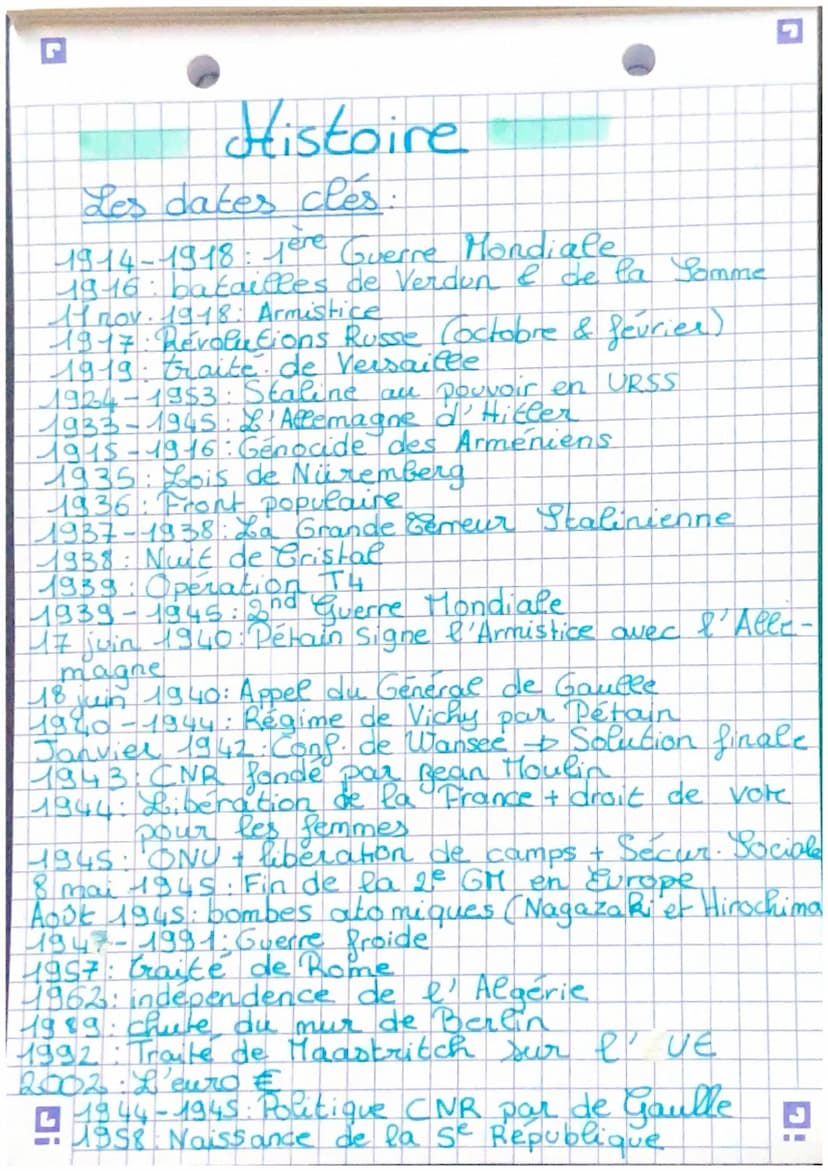 Histoire
Les dates clés :
1914-1918 : 1ère Guerre Mondiale
1916 : batailles de Verdun & de la Somme
11 nov. 1918 : Armistice
1917 : Révolutions Russe (octobre & février)
1919 : traité de Versaille
1924-1953 : Staline au pouvoir en URSS
1933-1945 : L'Allemagne d'Hitler
1915-1916 : Génocide des Arméniens
1935 : Lois de Nüremberg
1936 : Front populaire
1937-1938 : La Grande Terreur Stalinienne
1938 : Nuit de Cristal
1939 : Opération T4
1939-1945 : 2nd Guerre Mondiale
17 juin 1940 : Pétain signe l'Armistice avec l'Alle-
magne
18 juin 1940 : Appel du Général de Gaulle
1940-1944 : Régime de Vichy par Pétain
Janvier 1942 : Conf. de Wansee → Solution finale
1943 : CNR fondé par Jean Moulin
1944 : Libération de la France + droit de vote
pour les femmes
1945 : ONU + libération de camps + Sécur. Sociale
8 mai 1945 : Fin de la 2e GM en Europe
Août 1945 : bombes atomiques (Nagazaki et Hirochima
1947-1991 : Guerre froide
1957 : traité de Rome
1962 : indépendence de l'Algérie
1989 : chute du mur de Berlin
1992 : Traité de Maastritch sur l'UE
2002 : L'euro €
1944-1945 : Politique CNR par de Gaulle
1958 : Naissance de la 5e République